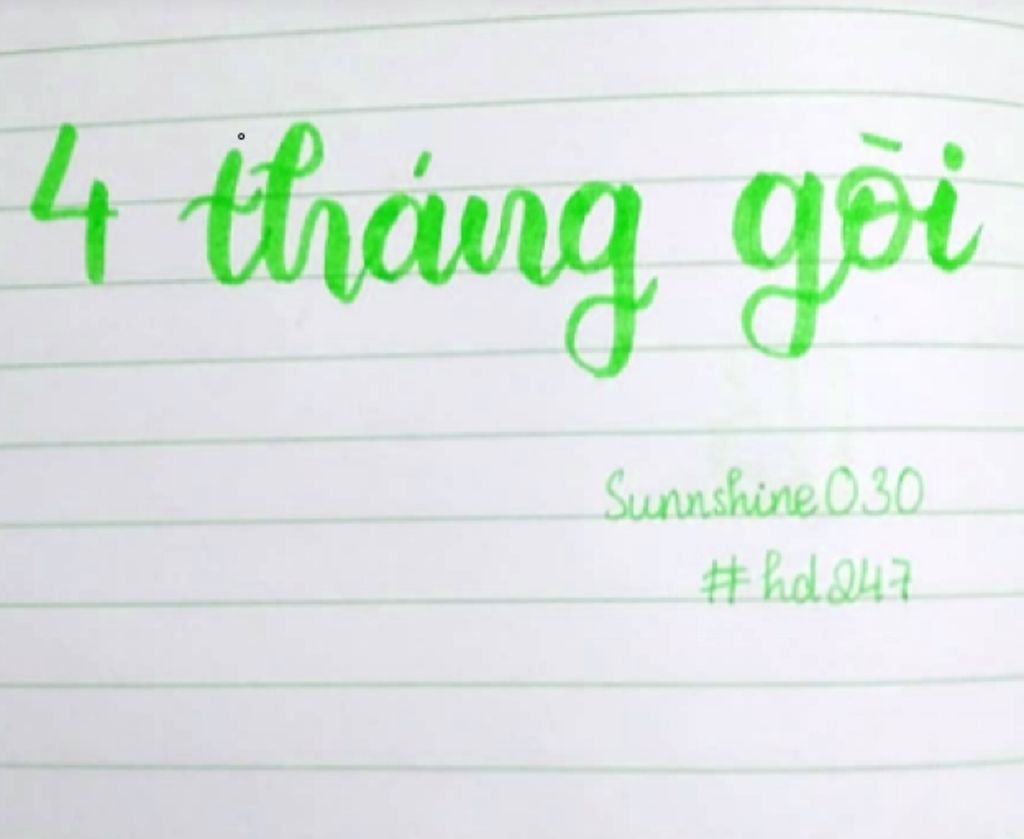 4 tháng gòi
Sunnshine030
#hd247